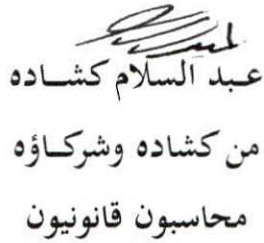 عبد السلام كشاده
من كشاده وشركاؤه
محاسبون قانونيون